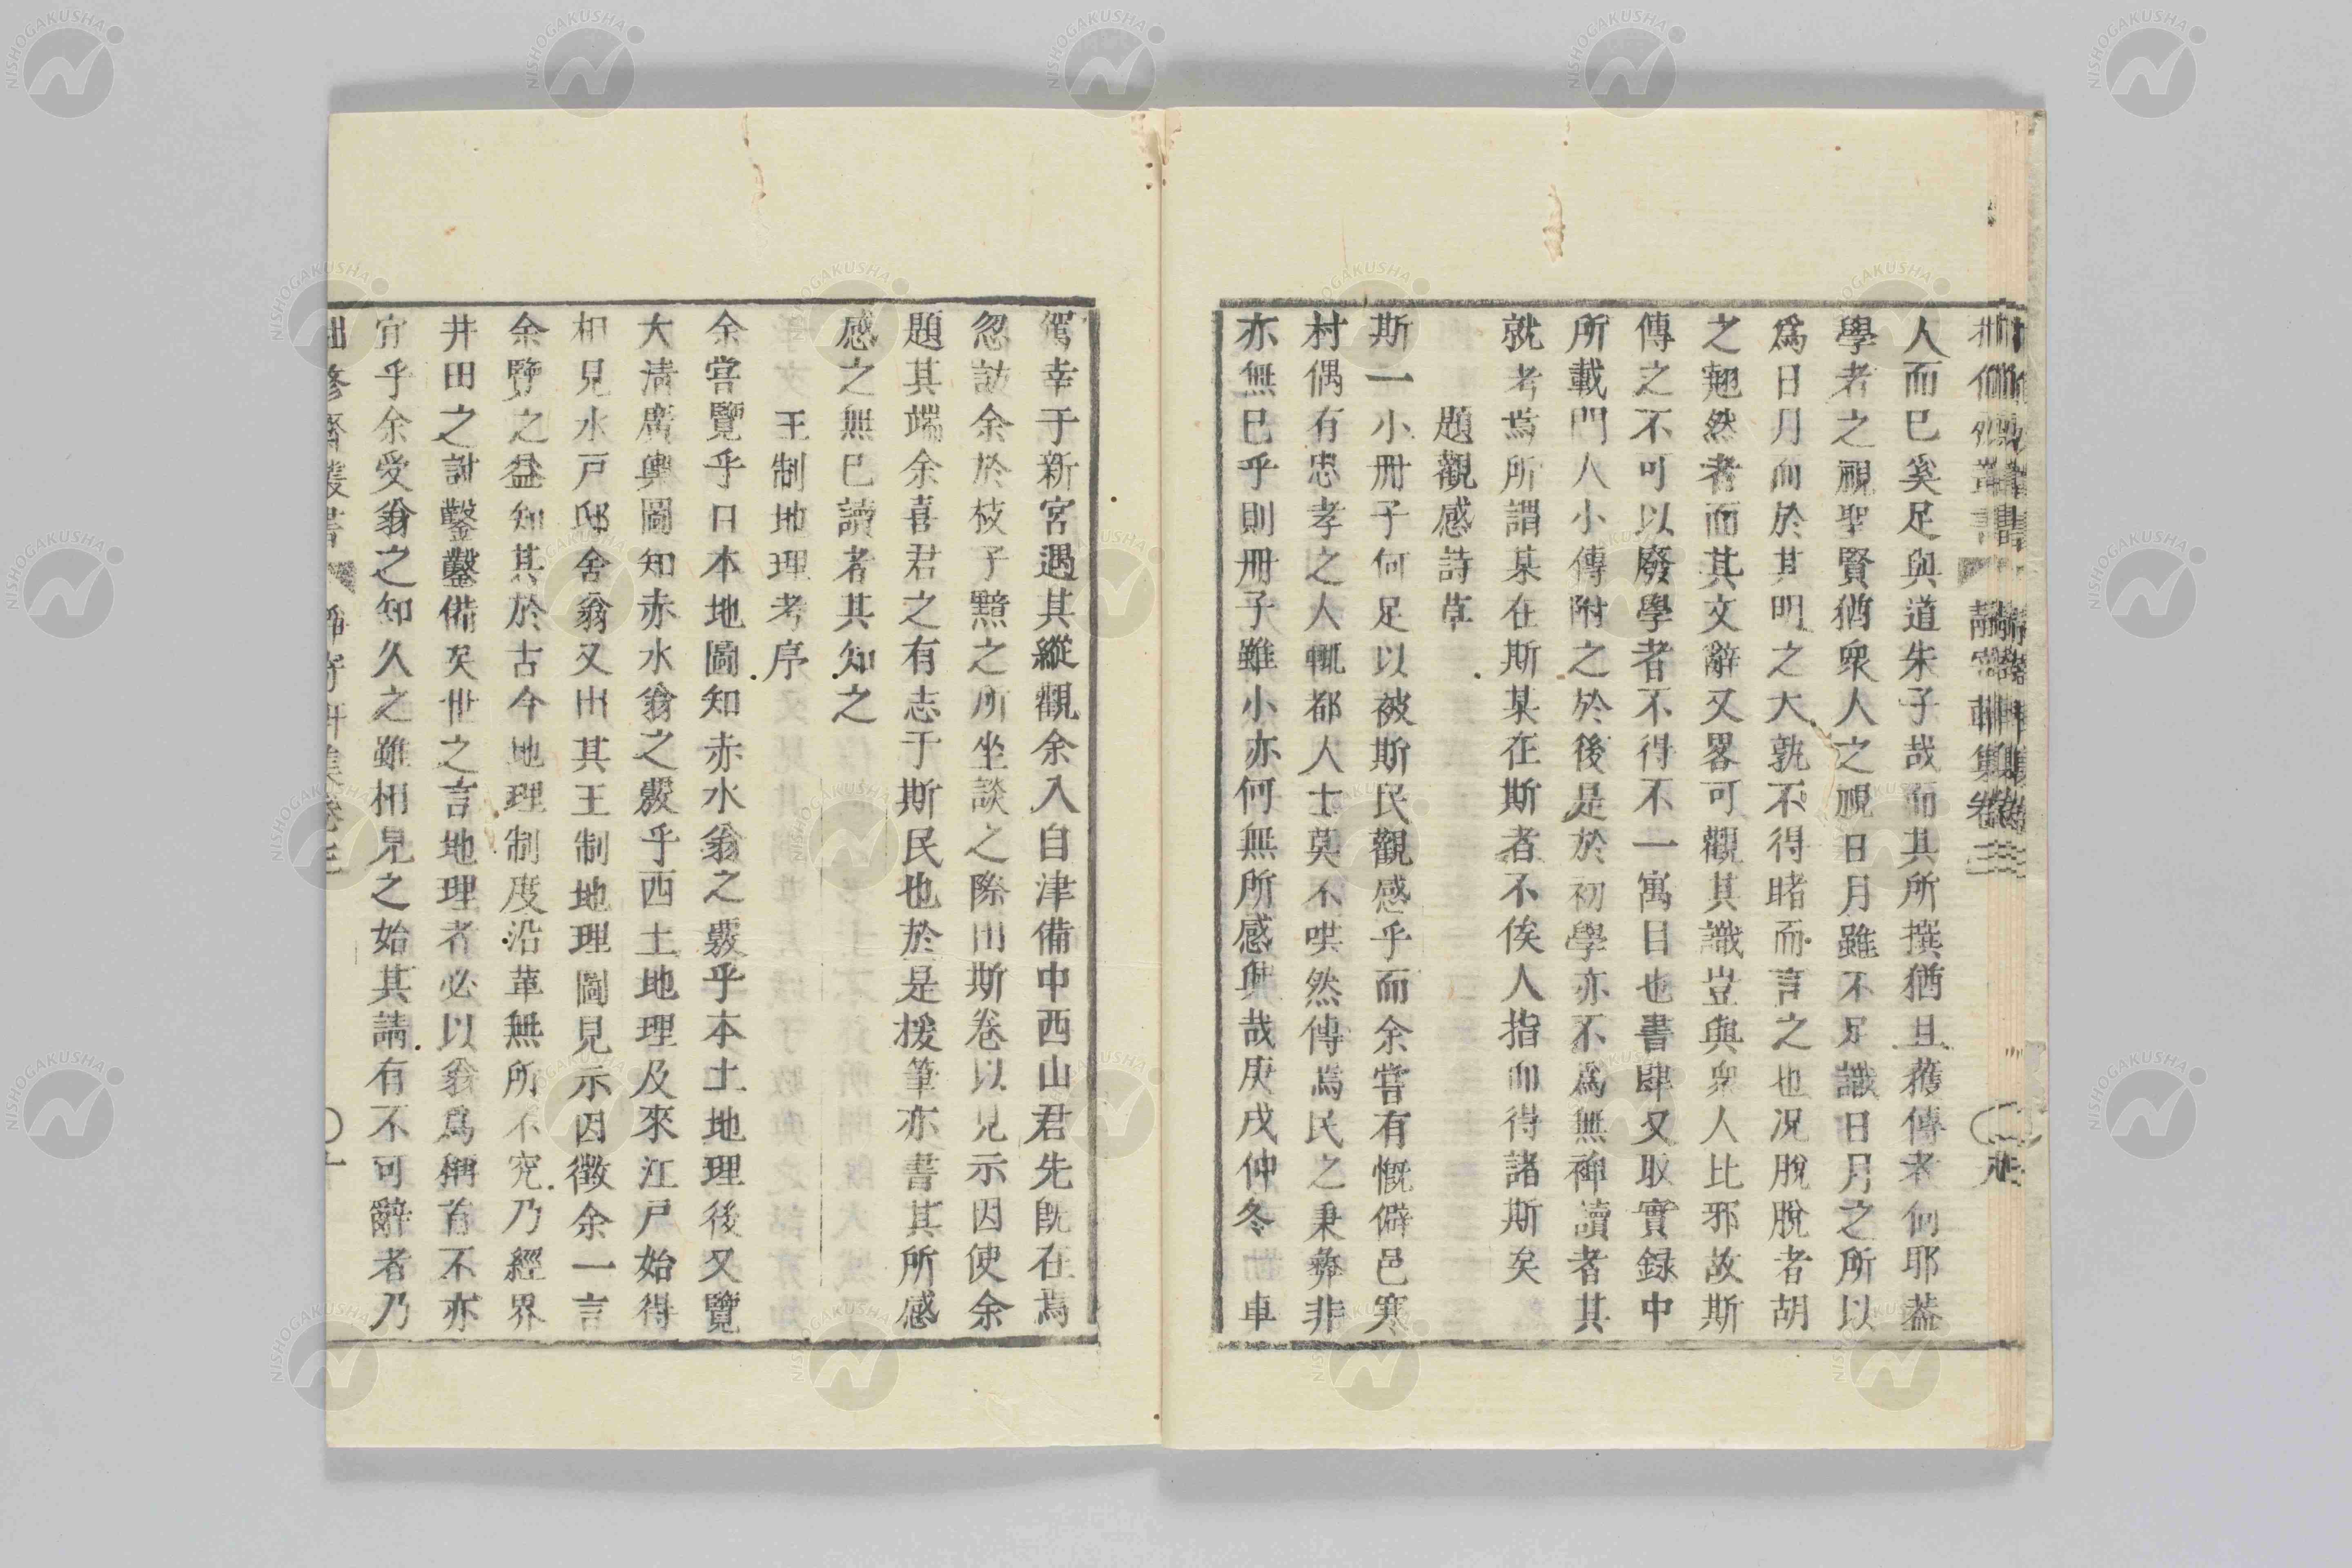 人而已奚足與道朱子哉而其所撰猶且獲傳者何耶蓋
學者之視聖賢猶衆人之視日月雖不足識日月之所以
爲日月而於其明之大孰不得睹而言之也况脫脫者胡
之翹然者而其文辭又畧可觀其識豈與衆人比邪故斯
傳之不可以廢學者不得不一寓目也書肆又取實録中
所載門人小傳附之於後是於初學亦不爲無裨讀者其
就考焉所謂某在斯某在斯者不俟人指而得諸斯矣
題觀感詩草
斯一小冊子何足以被斯民觀感乎而余嘗有慨僻邑寒
村偶有忠孝之人輒都人士莫不哄然傳焉民之秉彝非
亦無已乎則冊子雖小亦何無所感興哉庚戌仲冬 車
駕幸于新宮遇其縱觀余入自津備中西山君先既在焉
忽訪余於枝子黠之所坐談之際出斯卷以見示因使余
題其端余喜君之有志于斯民也於是援筆亦書其所感
感之無已讀者其知之
王制地理考序
余嘗覽乎日本地圖知赤水翁之覈乎本土地理後又覽
大清廣輿圖知赤水翁之覈乎西土地理及來江戸始得
相見水戸邸舍翁又出其王制地理圖見示因徴余一言
余覽之益知其於古今地理制度沿革無所不究乃經界
井田之討鑿鑿備矣世之言地理者必以翁爲稱首不亦
宜乎余受翁之知久之雖相見之始其請有不可辭者乃